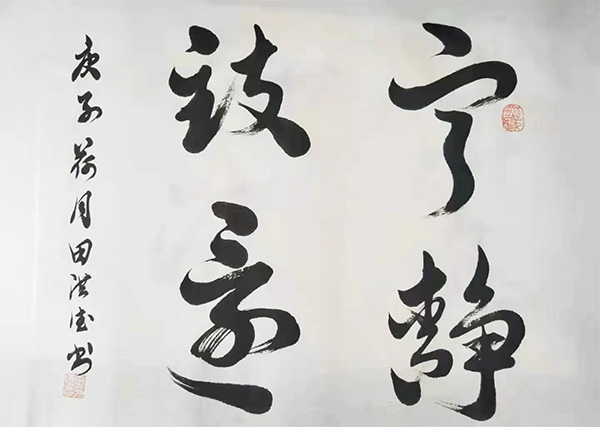 宁静
致远
庚子荷月田洪波书